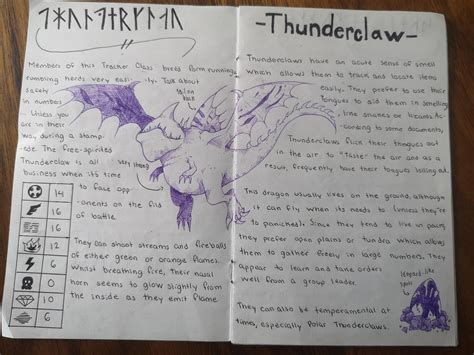 -Thunderclaw-
Members of this Tracker Class breed form running,
rumbling herds very easi-ly. Talk about
safety
in numbers
- Unless you
are in their
way during a stamp
-ide. The free-spirited
Thunderclaw is all
business when its time
to face opp
-onents on the fild
of battle.
talon
back
very strong
14
16
16
12
6
0
10
6
They can shoot streams and fireballs
of either green or orange flames.
Whilst breathing fire, their nasal
horn seems to glow slightly from
the inside as they emit flame
Thunderclaws have an acute sense of smell
which allows them to track and locate items
easily. They prefer to use their
tongues to aid them in smelling,
like snakes or lizards. Ac
-cording to some documents,
Thunderclaws flick their tongues out
in the air to "taste" the air and as a
result, frequently have their tongues lolling out.
This dragon usually lives on the ground, although
it can fly when it needs to (unless they're
to panicked). Since they tend to live in packs,
they prefer open plains or tundra which allows
them to gather freely in large numbers. They
appear to learn and take orders
well from a group leader.
They can also be temperamental at
times, especially Polar Thunderclaws.
leopard-like
spots